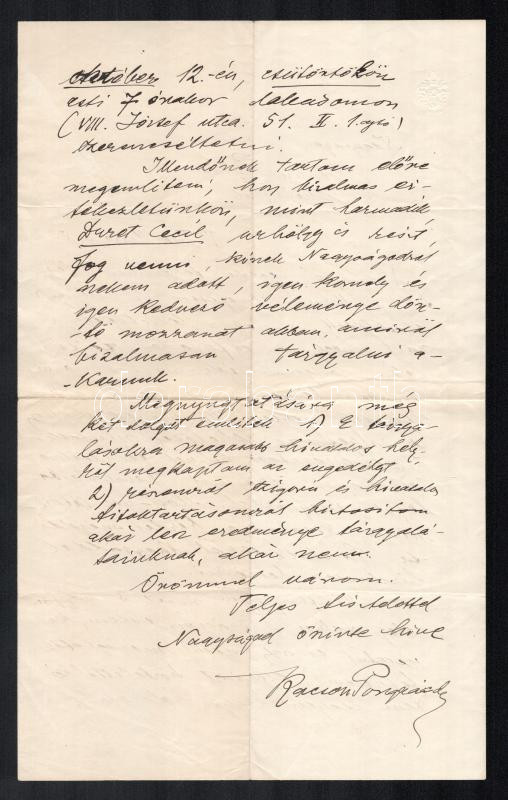 október 12.-én, csütörtökön
esti 7 órakor lakásomon
(VIII. József utca. 51. II. 1. ajtó)
szerencséltetni.
Illendőnek tartom előre
megemlíteni, hogy bizalmas ér-
tekezletünkön, mint harmadik
Duret Cecil urhölgy is részt
fog venni, kinek Nagyságodról
nekem adott, igen komoly és
igen kedvező véleménye dön-
tő mozzanat abban, amiről
bizalmasan tárgyalni a-
karunk.
Megnyugtatására még
két dolgot említek 1) E tárgya-
lásokra magasabb hivatalos hely-
ről megkaptam az engedélyt
2) részemről szigorú és hivatalos
titoktartásomról biztosítom
akár lesz eredménye tárgyalá-
sainknak, akár nem.
Örömmel várom.
Teljes tisztelettel
Nagyságod őszinte híve